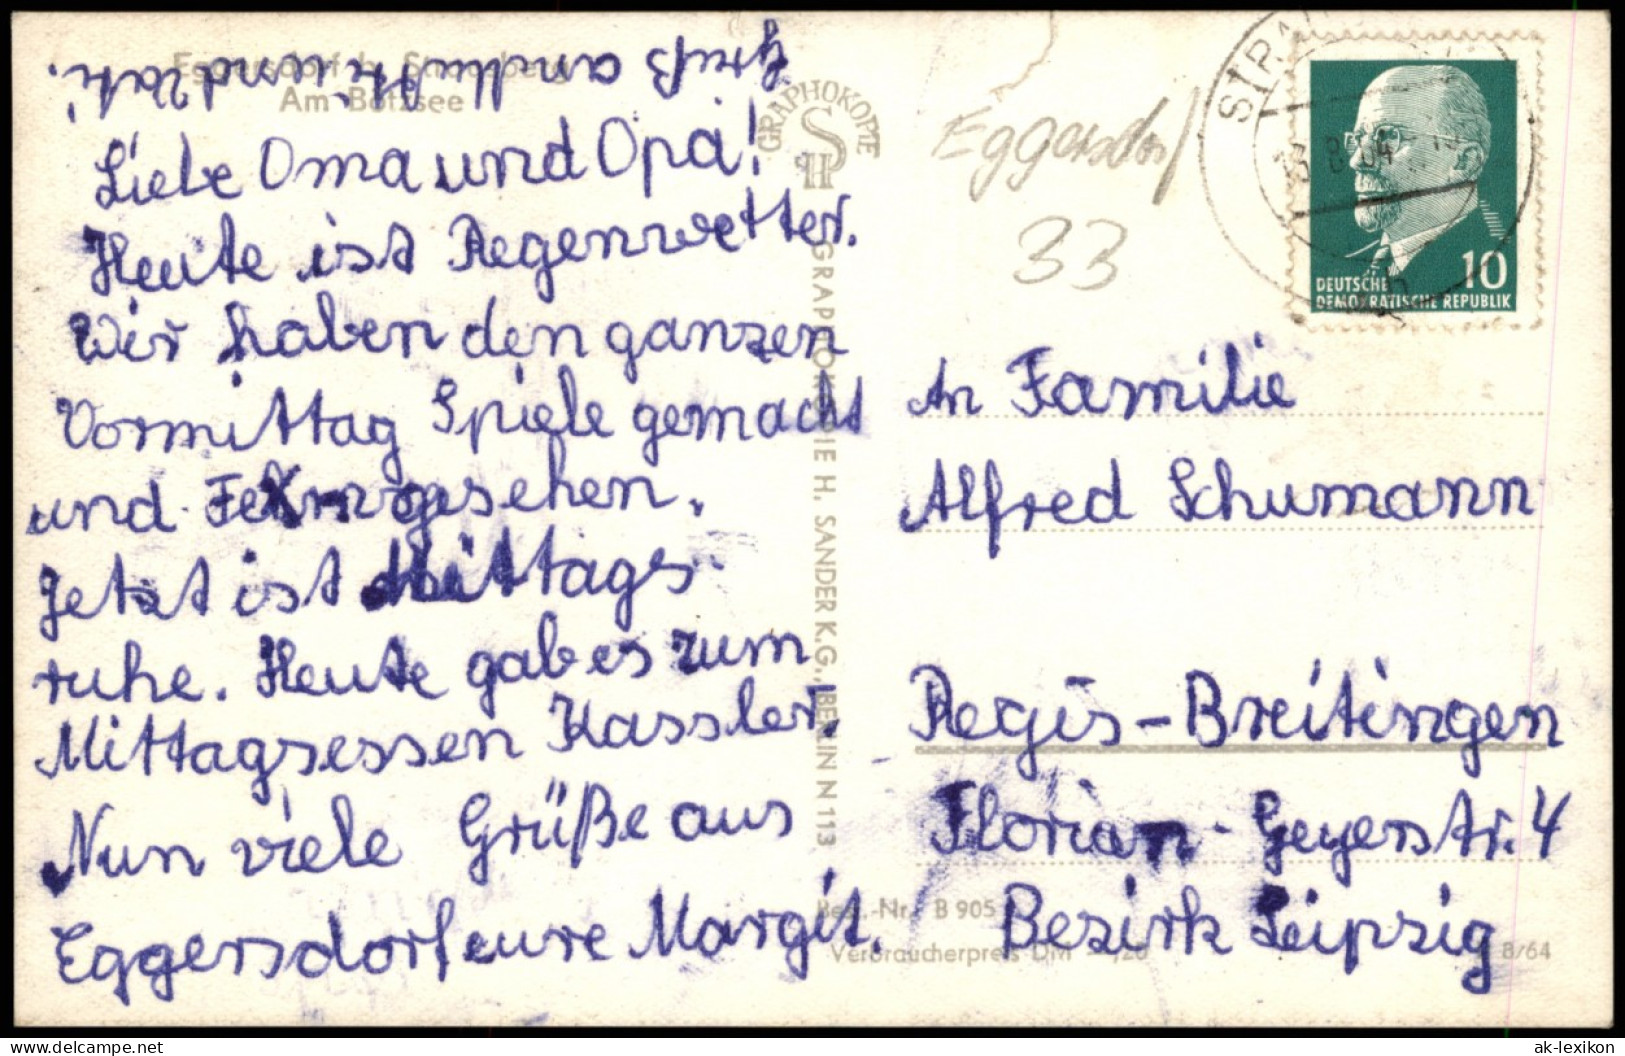 Eggersdorf b. Strausberg
Am Bötzsee
Gruß an Mutti und Vati!
Liebe Oma und Opa!
Heute ist Regenwetter.
Wir haben den ganzen
Vormittag Spiele gemacht
und Ferngesehen.
Jetzt ist Mittags
ruhe. Heute gab es zum
Mittagsessen Kassler.
Nun viele Grüße aus
Eggersdorf eure Margit.
GRAPHOKOPIE
H S
GRAPHOKOPIE H. SANDER K.G., BERLIN N 113
Eggersdorf
33
STRA
8.64
10
DEUTSCHE
DEMOKRATISCHE REPUBLIK
An Familie
Alfred Schumann
Regis-Breitingen
Florian-Geyerstr. 4
Bezirk Leipzig
Best.-Nr. B 905
Verbraucherpreis DM -,20
B/64
ak-ansichtskarten.de
ak-lexikon